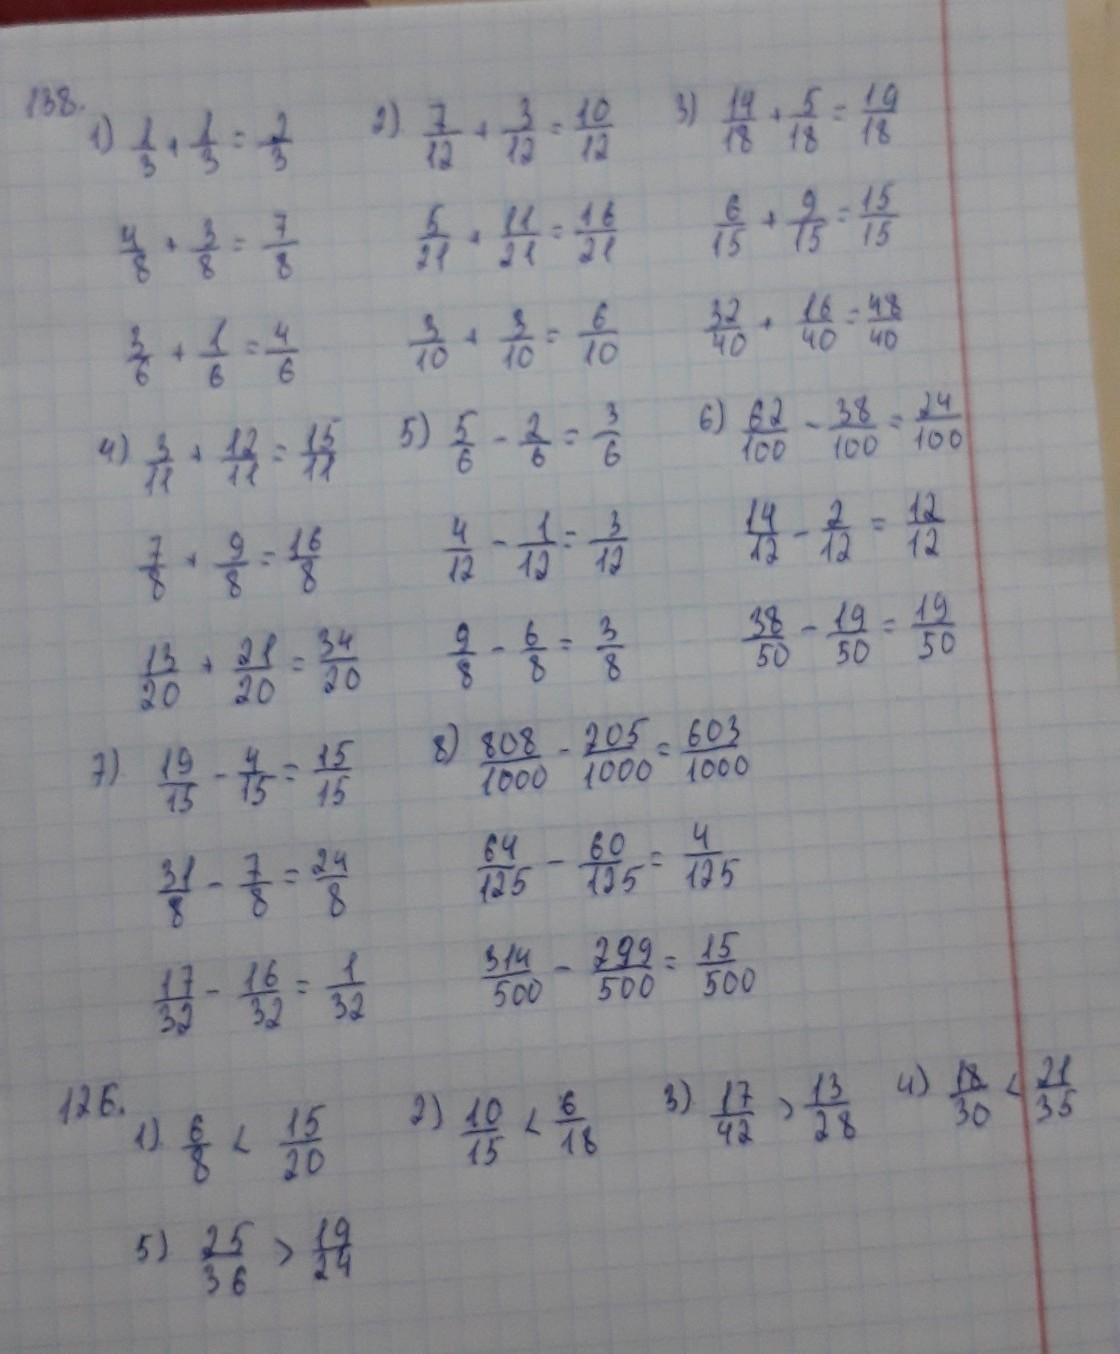 138.
1) 1/3 + 1/3 = 2/3 2) 7/12 + 3/12 = 10/12 3) 14/18 + 5/18 = 19/18
4/8 + 3/8 = 7/8 5/21 + 11/21 = 16/21 6/15 + 9/15 = 15/15
3/6 + 1/6 = 4/6 3/10 + 3/10 = 6/10 32/40 + 16/40 = 48/40
4) 3/11 + 12/11 = 15/11 5) 5/6 - 2/6 = 3/6 6) 62/100 - 38/100 = 24/100
7/8 + 9/8 = 16/8 4/12 - 1/12 = 3/12 14/12 - 2/12 = 12/12
13/20 + 21/20 = 34/20 9/8 - 6/8 = 3/8 38/50 - 19/50 = 19/50
7) 19/15 - 4/15 = 15/15 8) 808/1000 - 205/1000 = 603/1000
31/8 - 7/8 = 24/8 64/125 - 60/125 = 4/125
17/32 - 16/32 = 1/32 314/500 - 299/500 = 15/500
126.
1) 6/8 < 15/20 2) 10/15 < 6/18 3) 17/42 > 13/28 4) 18/30 < 21/35
5) 25/36 > 19/24